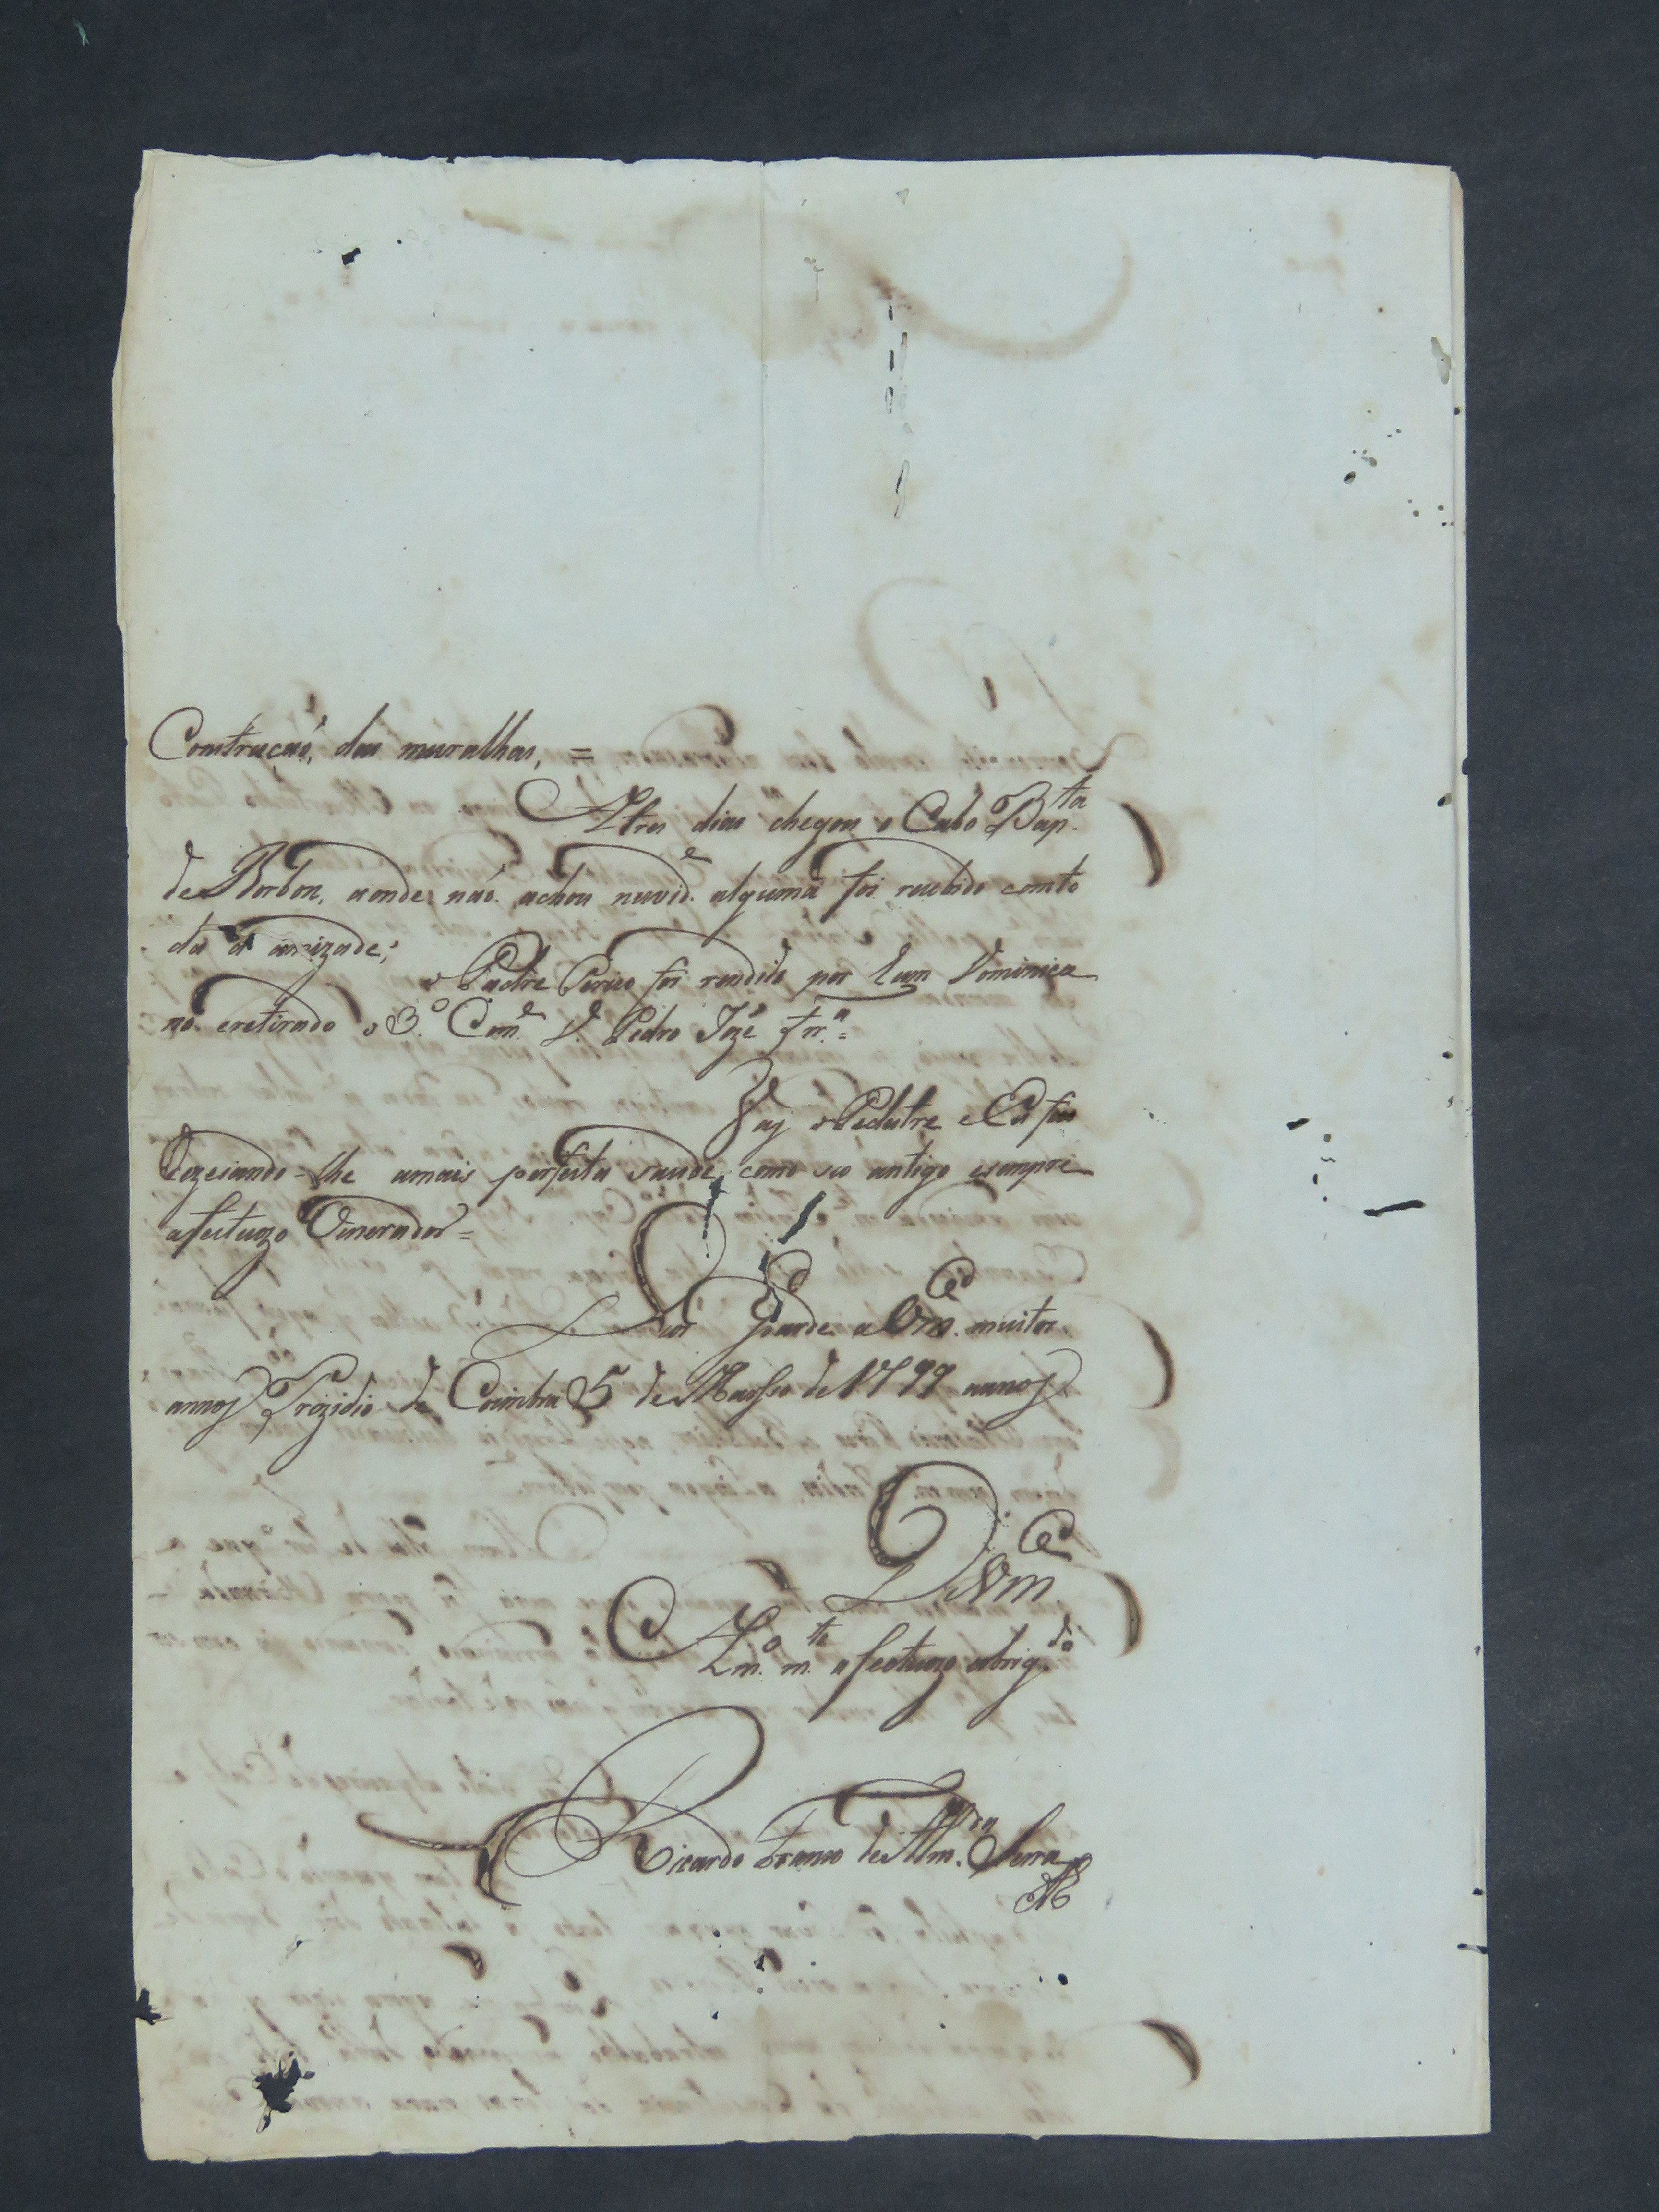 Construcaó, das muralhas, =
A tres dias chegou o Cabo Bap.ta
de Borbon, aonde não achou novid.e alguma foi recebido com to
da a amizade;
o Padre Perico foi rendido por hum Dominica
no eretirado o 3.º Com.e D. Pedro Jozé Frr.a =
Vay o Pedestre e Eu fico
dezeiando-lhe amais perfeita saude como seo antigo esempre
afectuozo Venerador =
Deos g.de a Vm.ce muitos
annos Prezidio de Coimbra 5 de Marsso de 1799 annos
D Vm.ce
Am.º m.to afectuozo obrig.do
Ricardo Franco de Alm.da Serra